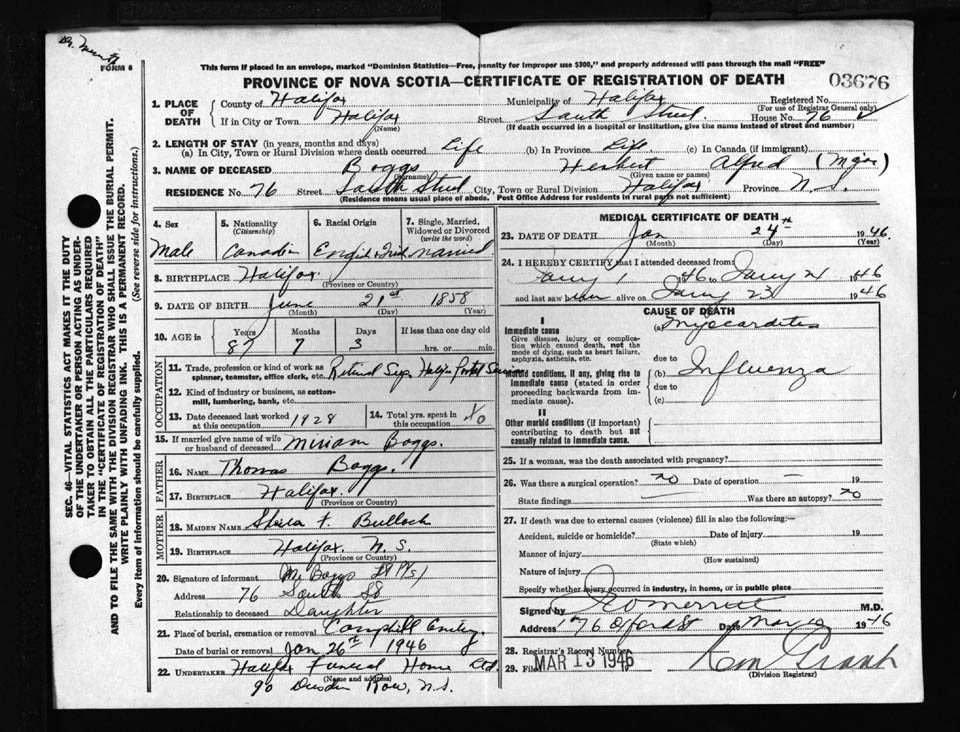 FORM 6
This form if placed in an envelope, marked "Dominion Statistics—Free, penalty for improper use $300," and properly addressed will pass through the mail "FREE"
PROVINCE OF NOVA SCOTIA—CERTIFICATE OF REGISTRATION OF DEATH 03676
1. PLACE OF DEATH
County of Halifax Municipality of Halifax Registered No.
(For use of Registrar General only)
If in City or Town Halifax Street South Street House No. 76
(Name) (If death occurred in a hospital or institution, give the name instead of street and number)
2. LENGTH OF STAY (in years, months and days)
(a) In City, Town or Rural Division where death occurred Life (b) In Province Life (c) In Canada (if immigrant)
3. NAME OF DECEASED Boggs Herbert Alfred (Major)
(Surname) (Given name or names)
RESIDENCE No. 76 Street South Street City, Town or Rural Division Halifax Province N.S.
(Residence means usual place of abode. Post Office Address for residents in rural parts not sufficient)
4. Sex Male
5. Nationality (Citizenship) Canadian
6. Racial Origin
7. Single, Married, Widowed or Divorced (write the word) Married
8. BIRTHPLACE Halifax
(Province or Country)
9. DATE OF BIRTH June 21st 1858
(Month) (Day) (Year)
10. AGE Years 87 Months 7 Days 3 If less than one day old hrs. or min.
OCCUPATION
11. Trade, profession or kind of work as spinner, teamster, office clerk, etc. Retired Sup. Halifax Postal Service
12. Kind of industry or business, as cotton-mill, lumbering, bank, etc.
13. Date deceased last worked at this occupation 1928
14. Total yrs. spent in this occupation
15. If married give name of wife or husband of deceased Miriam Boggs.
FATHER
16. NAME Thomas Boggs.
17. BIRTHPLACE Halifax.
(Province or Country)
MOTHER
18. MAIDEN NAME Sheila F. Bulloch
19. BIRTHPLACE Halifax. N.S.
(Province or Country)
20. Signature of informant Boggs
Address 76 South St
Relationship to deceased Daughter
21. Place of burial, cremation or removal Camphill Cemetery
Date of burial or removal Jan 26th 1946
22. UNDERTAKER Halifax Funeral Home Ltd.
(Name and address)
90 Row, N.S.
MEDICAL CERTIFICATE OF DEATH
23. DATE OF DEATH Jan 24th 1946.
(Month) (Day) (Year)
24. I HEREBY CERTIFY that I attended deceased from
1946 to Jany 24 1946
and last saw him alive on Jany 23 1946
CAUSE OF DEATH
I
Immediate cause
Give disease, injury or complication which caused death, not the mode of dying, such as heart failure, asphyxia, asthenia, etc.
(a) Myocarditis
due to
Morbid conditions, if any, giving rise to immediate cause (stated in order proceeding backwards from immediate cause).
(b) Influenza
due to
(c)
II
Other morbid conditions (if important) contributing to death but not causally related to immediate cause.
25. If a woman, was the death associated with pregnancy?
26. Was there a surgical operation? no Date of operation – 19
State findings Was there an autopsy? no
27. If death was due to external causes (violence) fill in also the following:—
Accident, suicide or homicide? Date of injury 19
(State which)
Manner of injury
(How sustained)
Nature of injury
Specify whether injury occurred in industry, in home, or in public place
Signed by M.D.
Address 176 Oxford St Date Mar 1946
28. Registrar's Record Number
29. Filed MAR 13 1946
(Division Registrar)
SEC. 46—VITAL STATISTICS ACT MAKES IT THE DUTY OF THE UNDERTAKER OR PERSON ACTING AS UNDERTAKER TO OBTAIN ALL THE PARTICULARS REQUIRED IN THE "CERTIFICATE OF REGISTRATION OF DEATH" AND TO FILE THE SAME WITH THE DIVISION REGISTRAR WHO SHALL ISSUE THE BURIAL PERMIT.
WRITE PLAINLY WITH UNFADING INK. THIS IS A PERMANENT RECORD.
Every item of information should be carefully supplied. (See reverse side for instructions.)